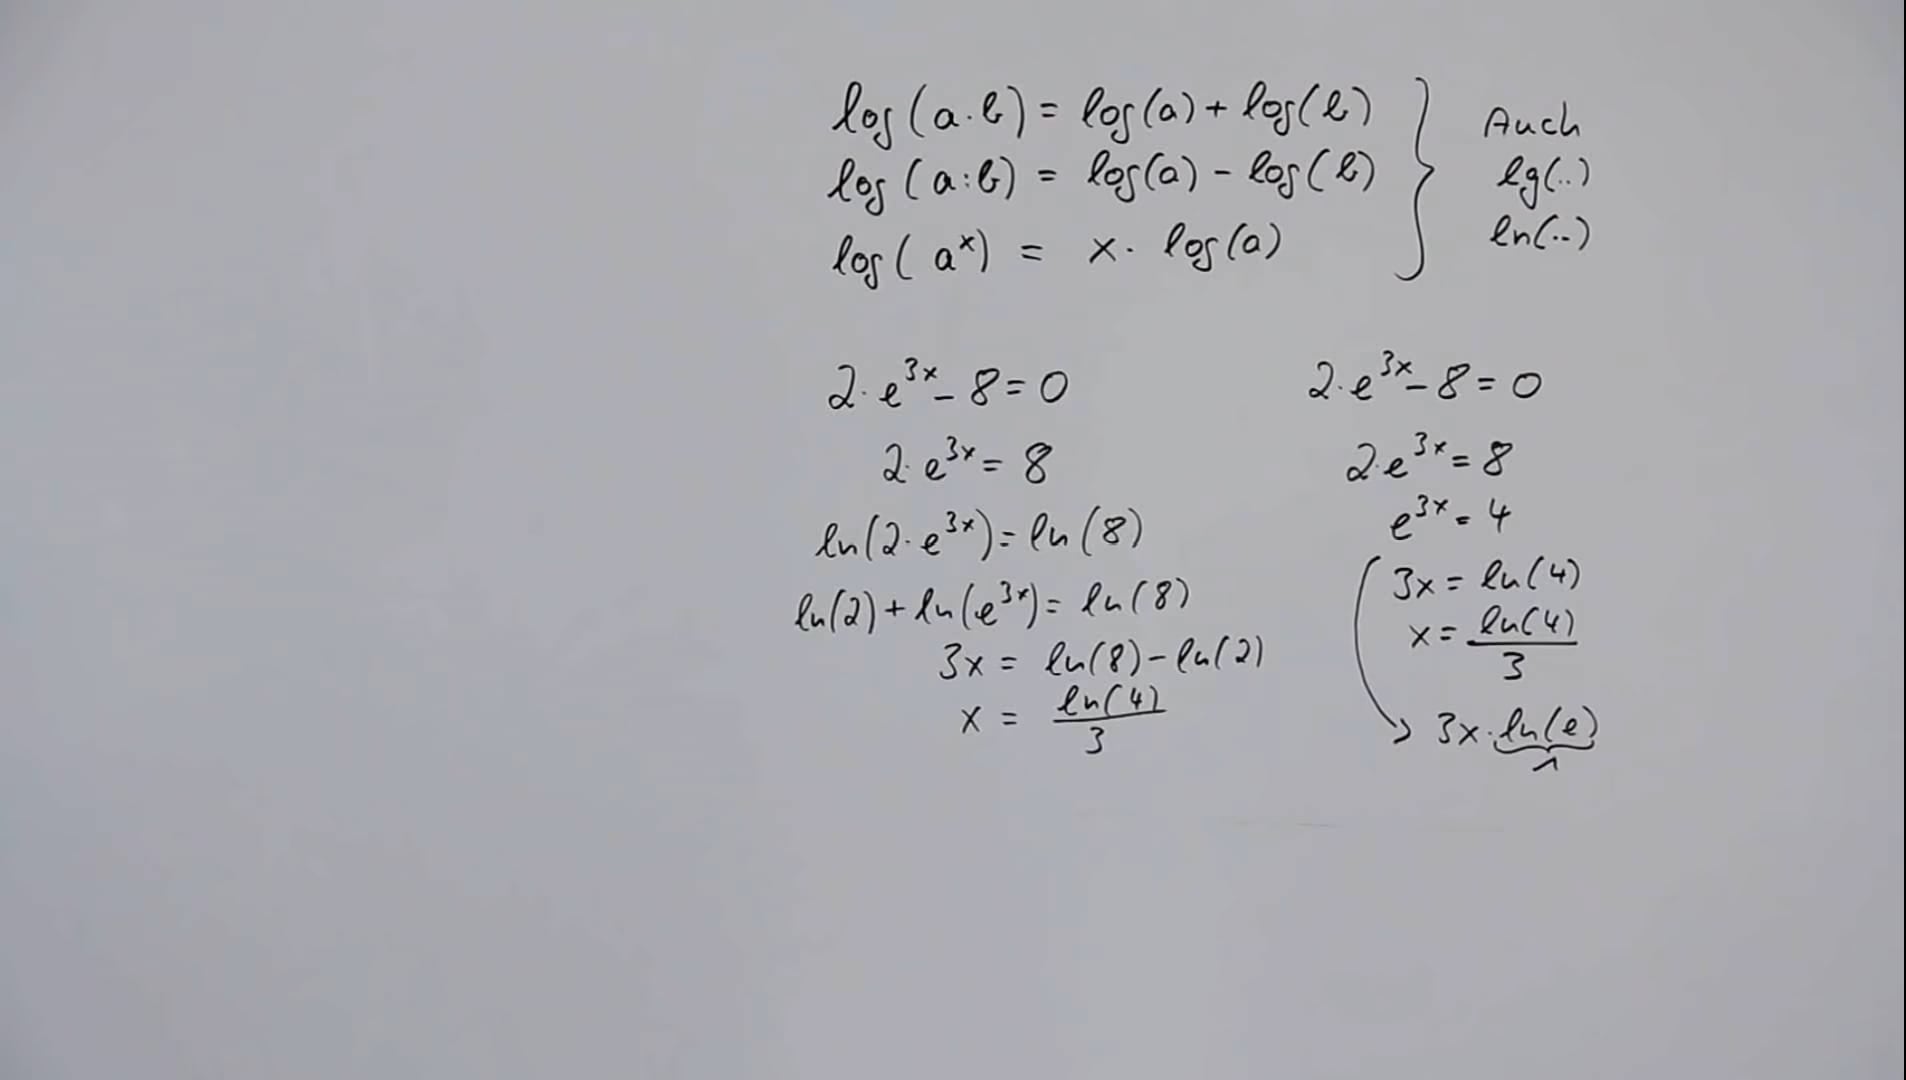 log(a·b) = log(a) + log(b)
log(a:b) = log(a) - log(b)
log(aˣ) = x· log(a)
Auch
lg(..)
ln(..)
2·e³ˣ - 8 = 0
2·e³ˣ = 8
ln(2·e³ˣ) = ln(8)
ln(2) + ln(e³ˣ) = ln(8)
3x = ln(8) - ln(2)
x = ln(4)/3
2·e³ˣ - 8 = 0
2·e³ˣ = 8
e³ˣ = 4
3x = ln(4)
x = ln(4)/3
3x·ln(e)
1